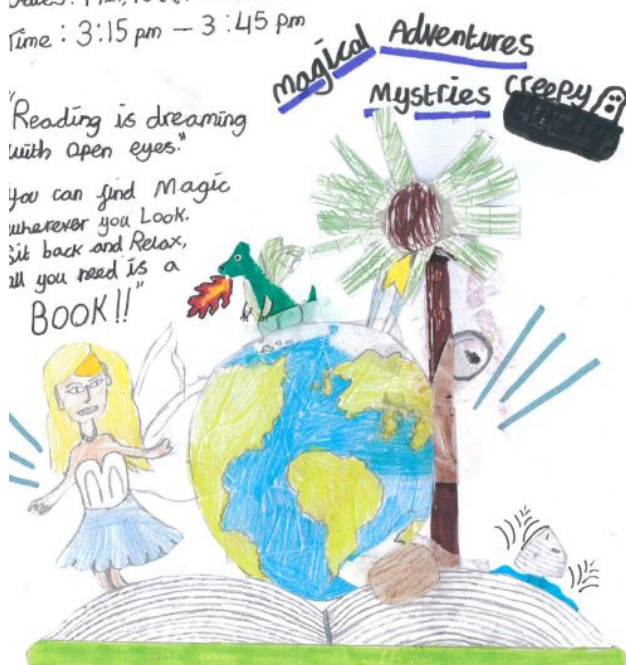 Time : 3:15 pm – 3:45 pm
magical Adventures
Mystries creepy
"Reading is dreaming
with open eyes."
You can find Magic
wherever you Look.
Sit back and Relax,
all you need is a
BOOK!!"